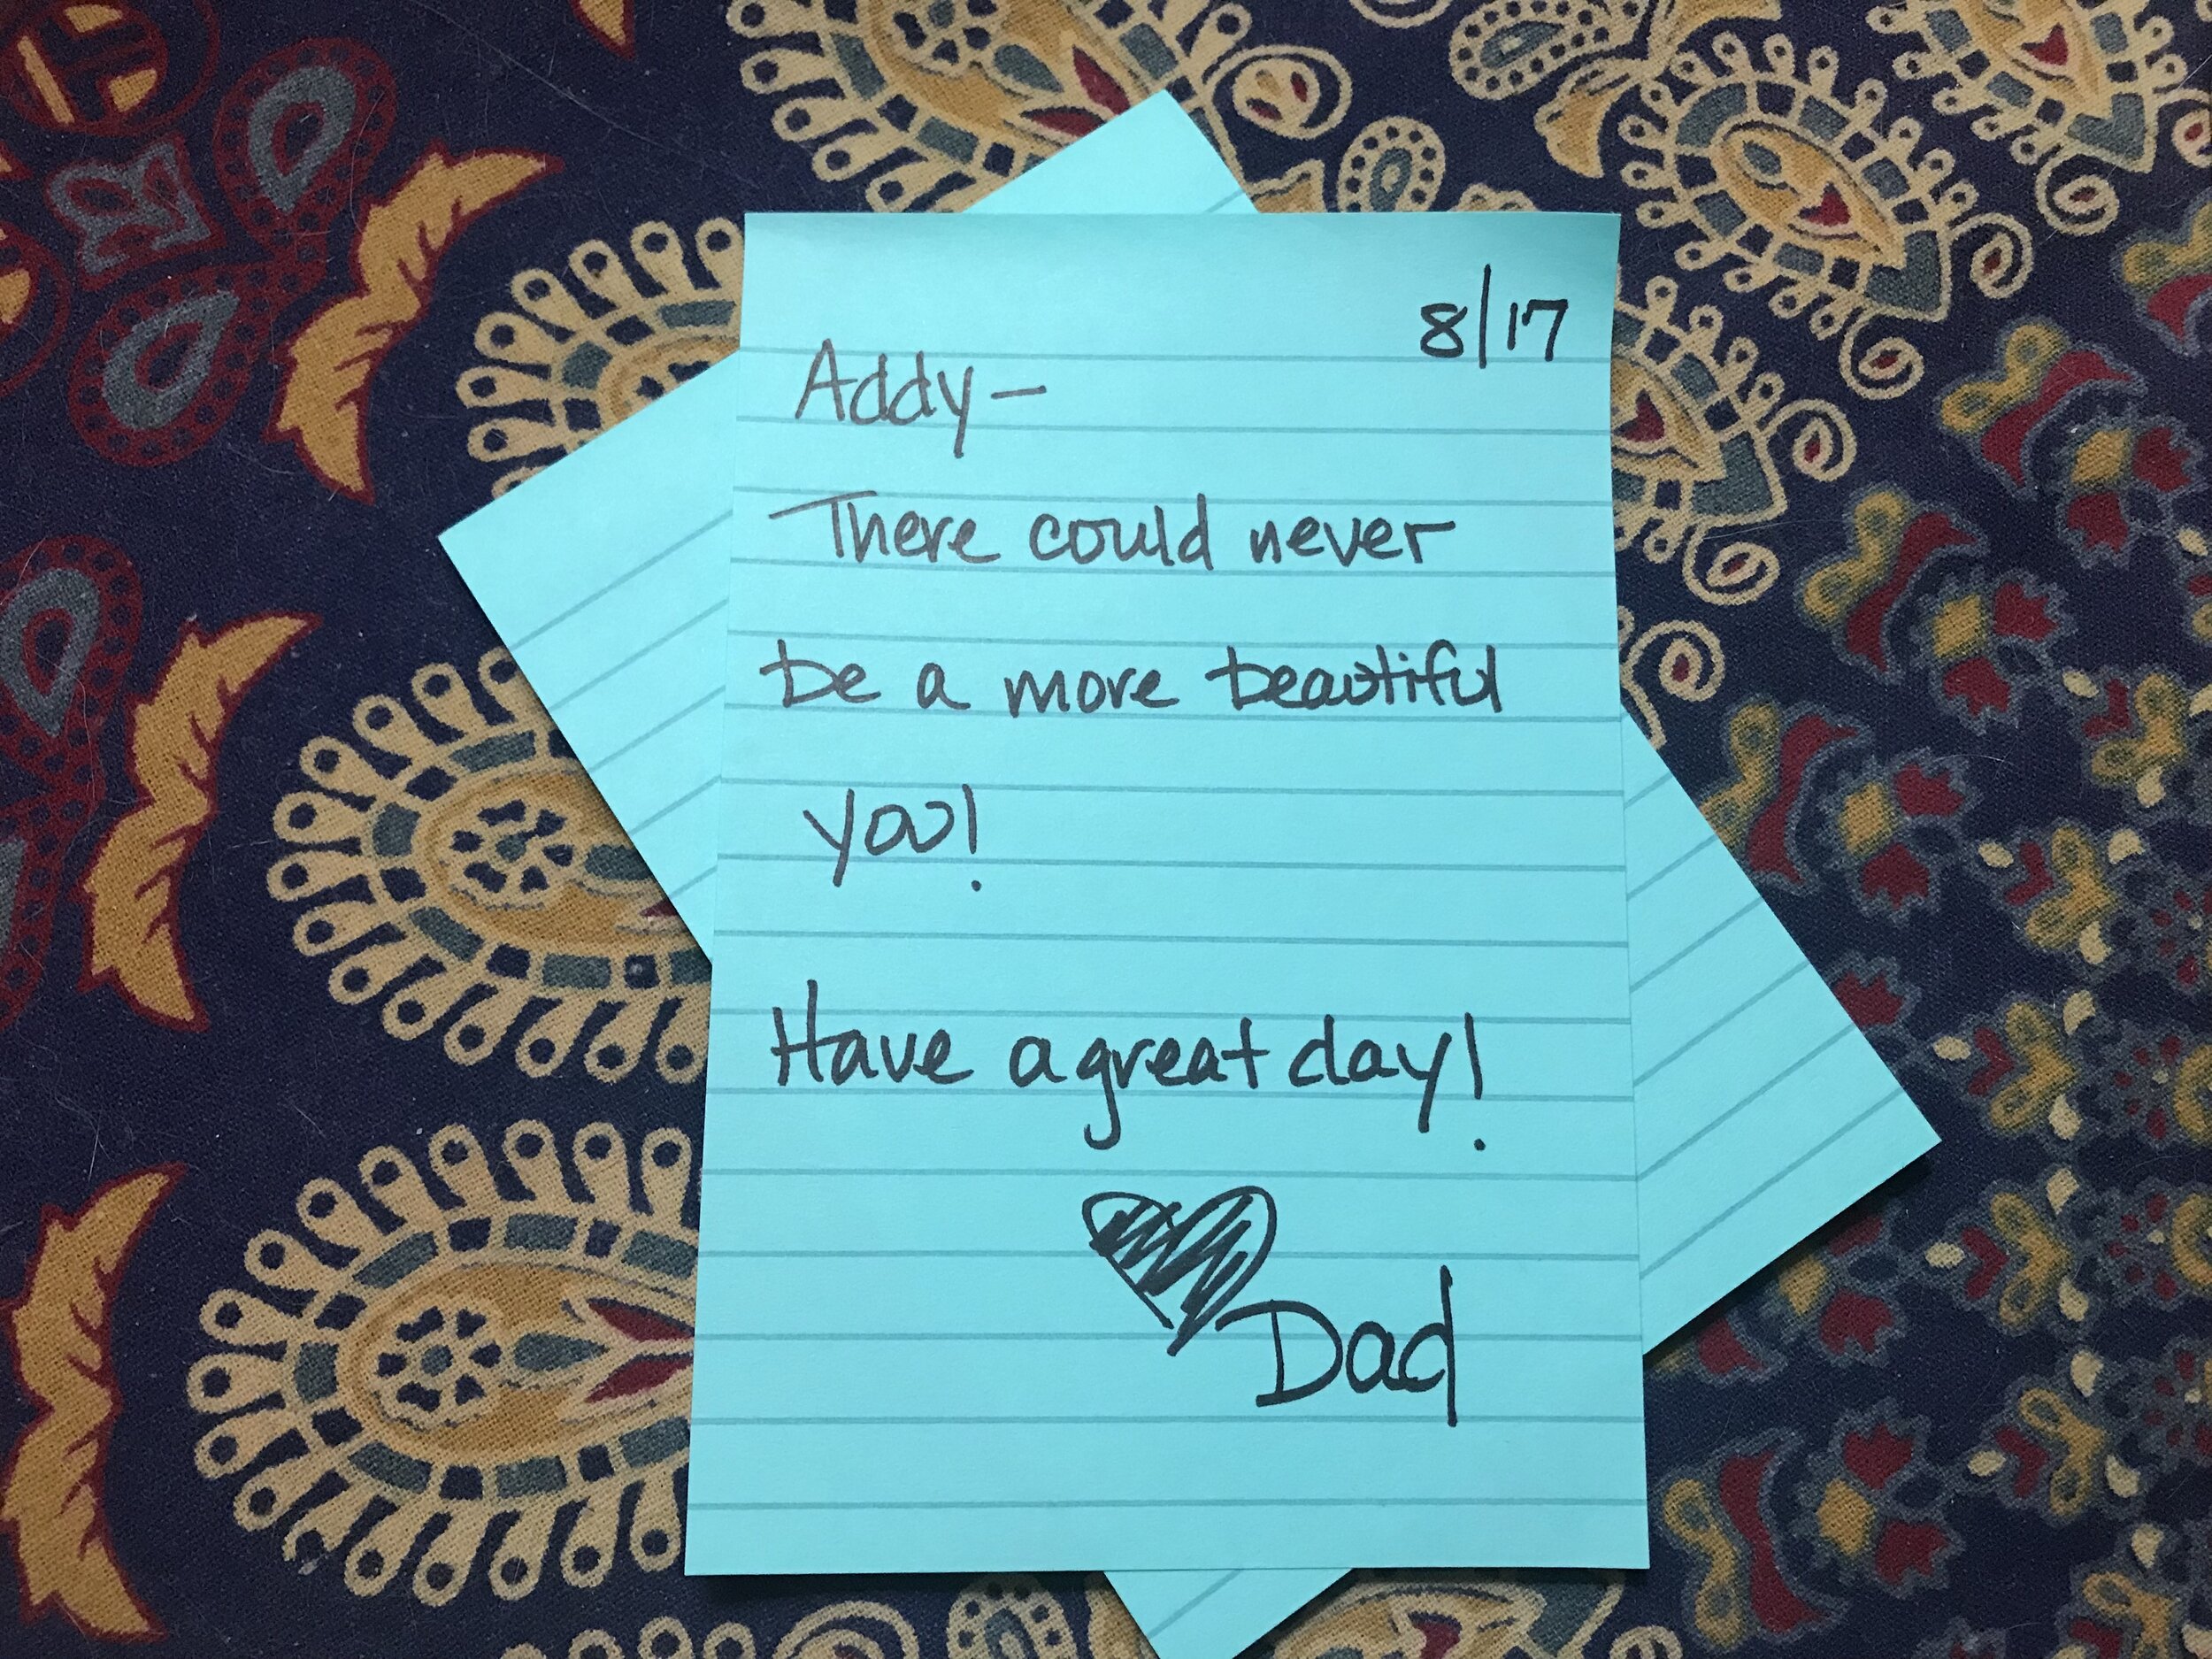 8/17
Addy-
There could never
be a more beautiful
you!
Have a great day!
Dad